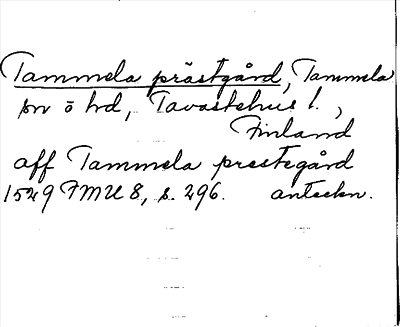 Tammela prästgård, Tammela
sn o hd, Tavastehus l.,
Finland
aff Tammela prestegård
1529 FMU 8, s. 296. anteckn.